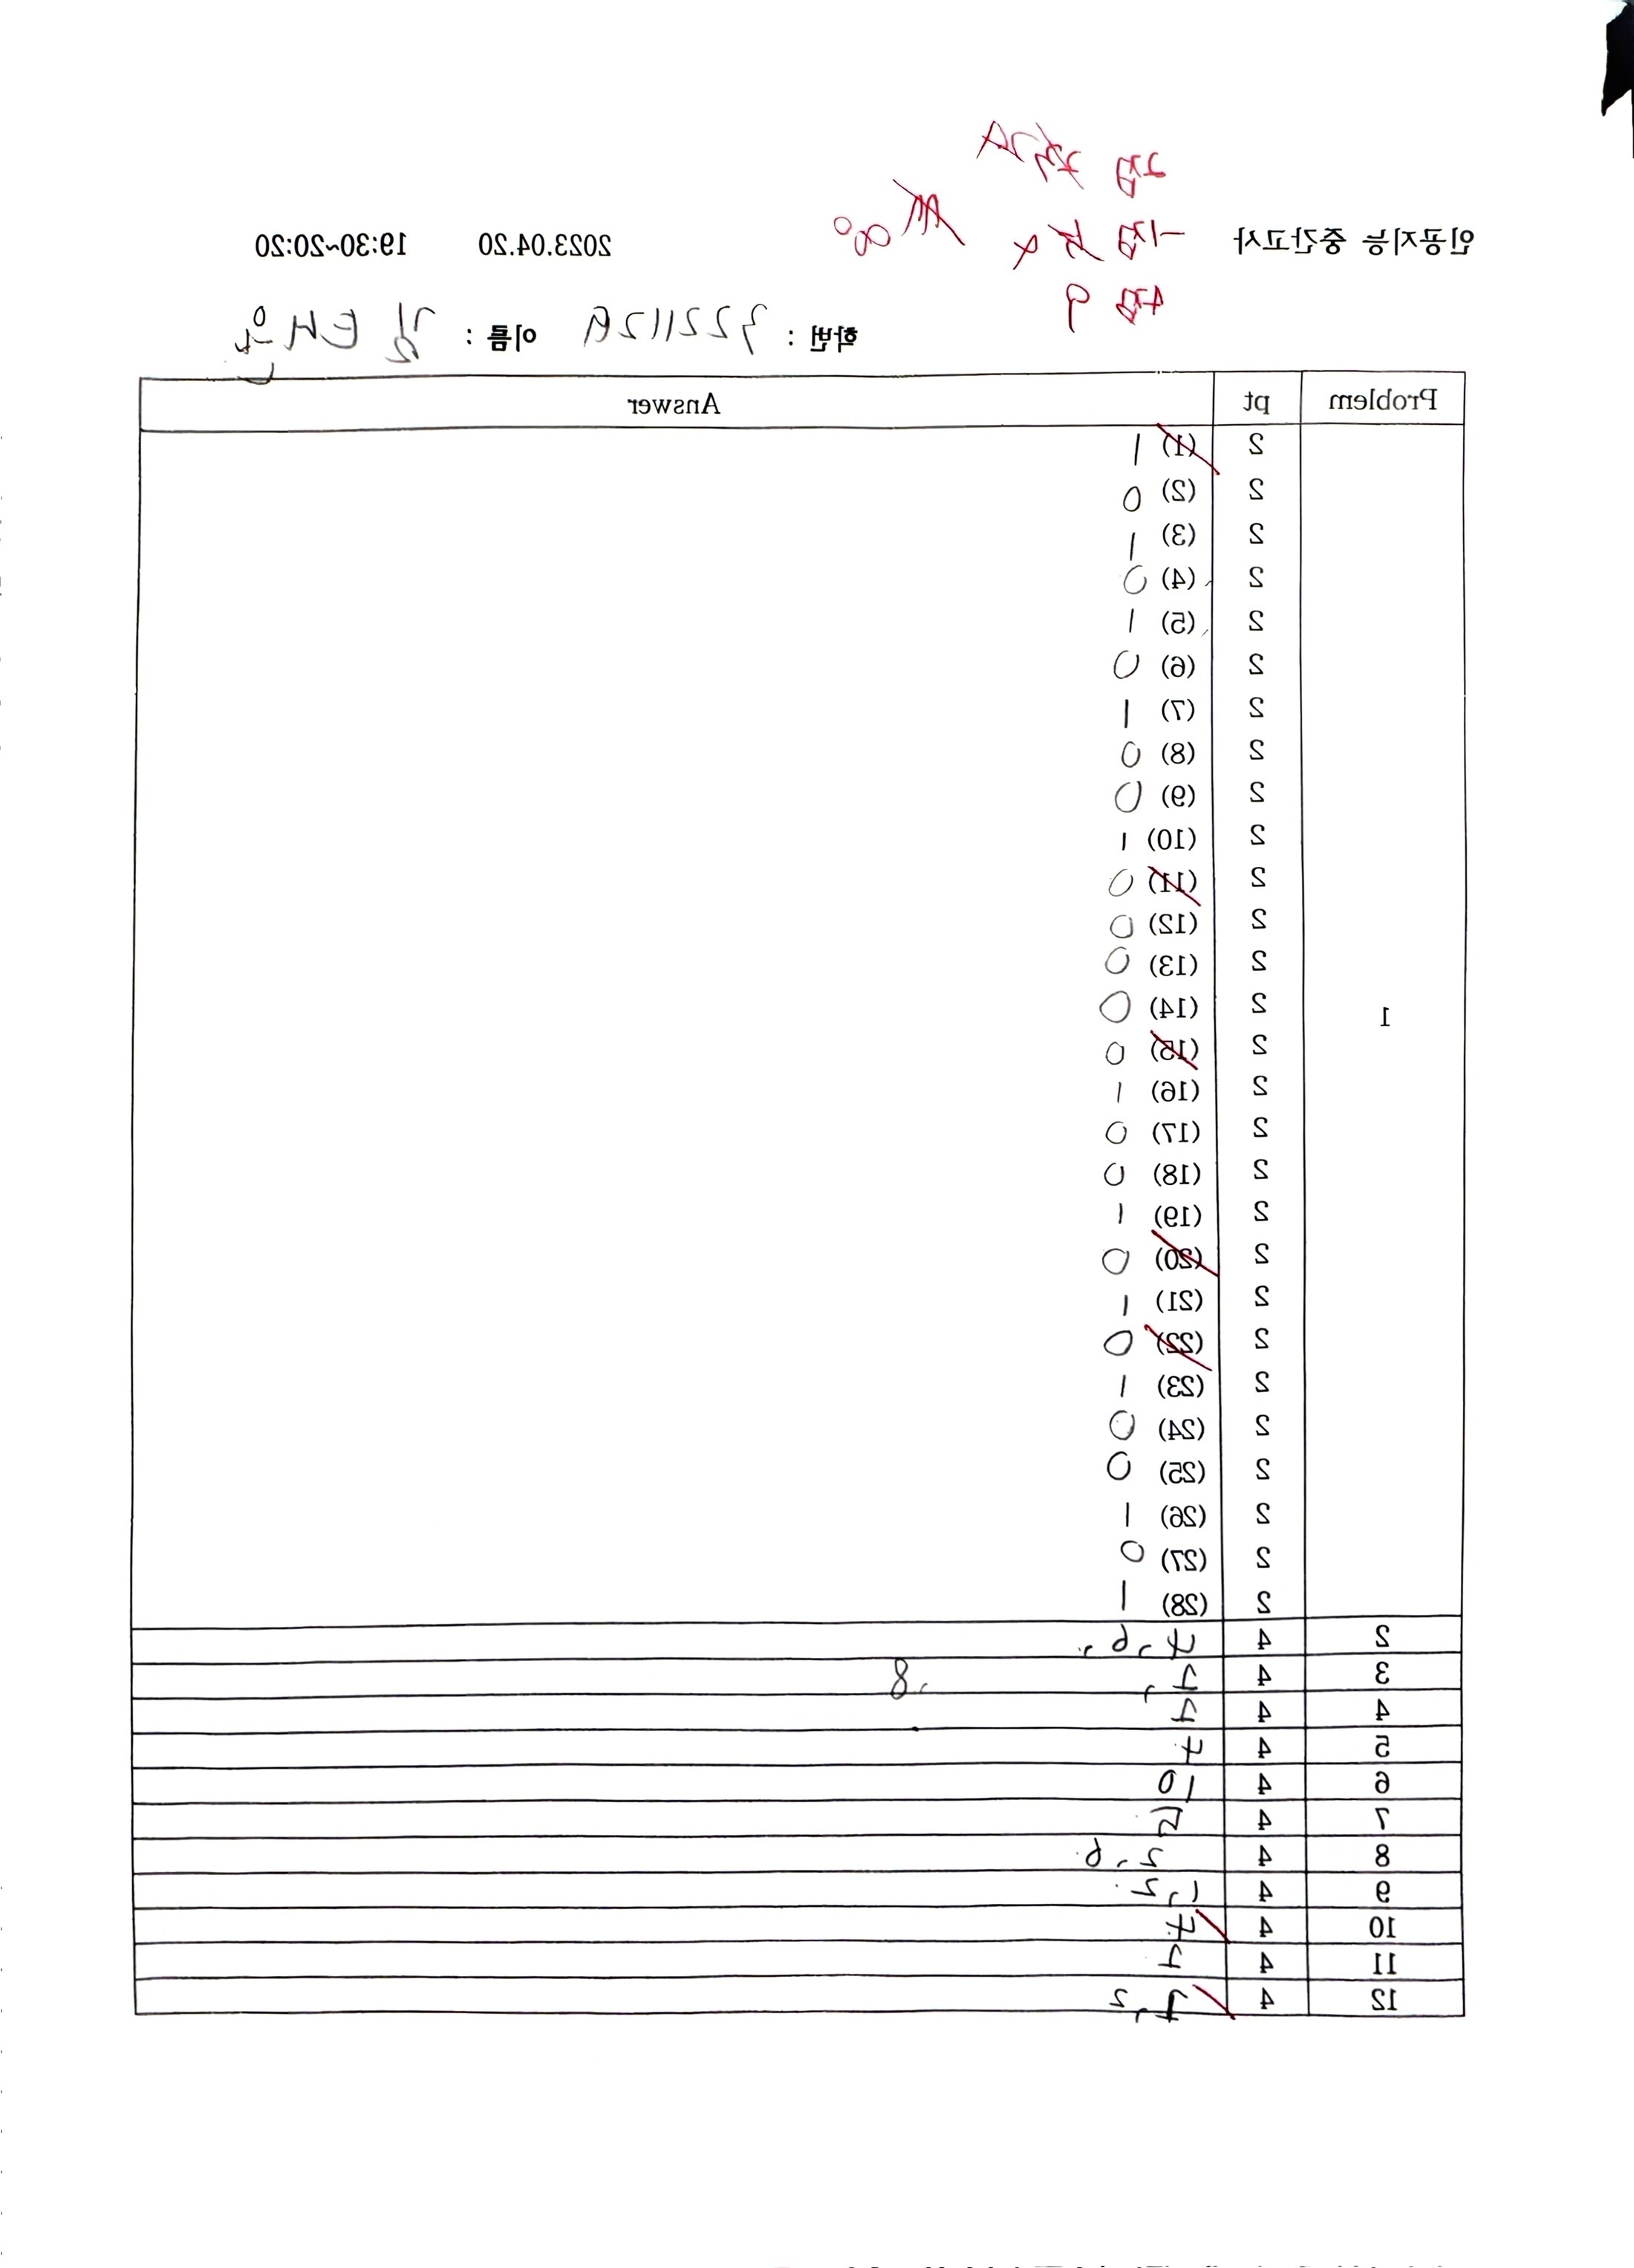 2점
-1점 4
4점 9
80
인공지능 중간고사 2023.04.20 19:30~20:20
학번 : 이름 : 김태욱
Problem pt Answer
1
2 (1) 1
2 (2) 0
2 (3) 1
2 (4) 0
2 (5) 1
2 (6) 0
2 (7) 1
2 (8) 0
2 (9) 0
2 (10) 1
2 (11) 0
2 (12) 0
2 (13) 0
2 (14) 0
2 (15) 0
2 (16) 1
2 (17) 0
2 (18) 0
2 (19) 1
2 (20) 0
2 (21) 1
2 (22) 0
2 (23) 1
2 (24) 0
2 (25) 0
2 (26) 1
2 (27) 0
2 (28) 1
2 4 4, 6,
3 4 1, , 8
4 4 1
5 4 4
6 4 10
7 4 5
8 4 2, 6
9 4 1, 2
10 4 4
11 4 1
12 4 1, 2